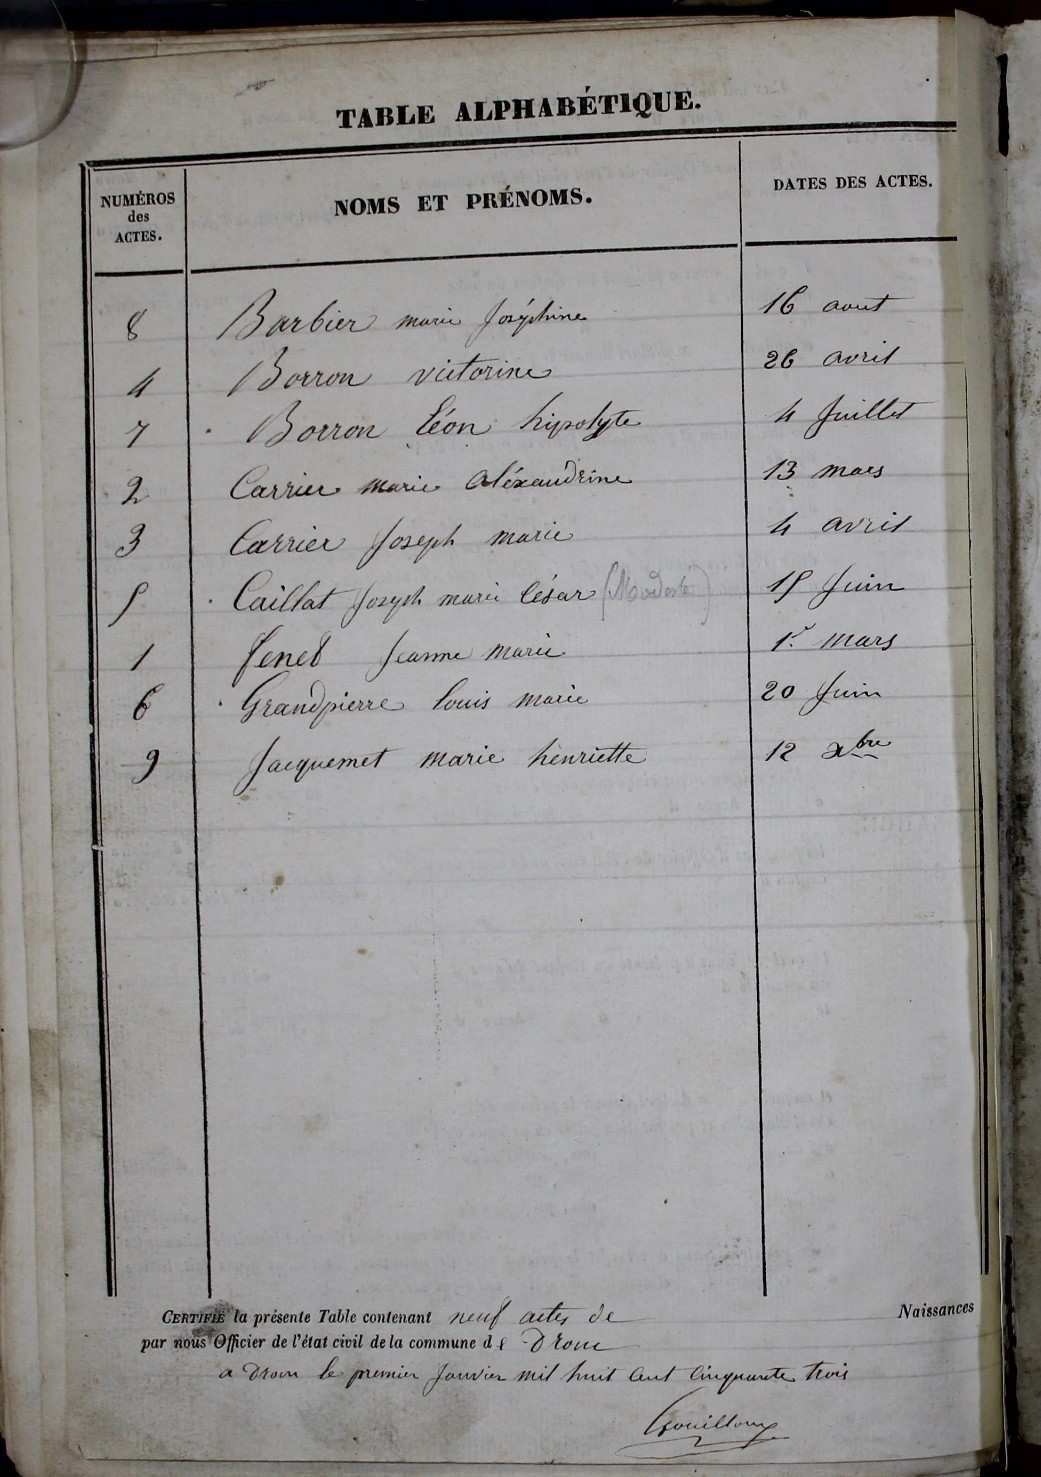 TABLE ALPHABÉTIQUE.
NUMÉROS des ACTES. NOMS ET PRÉNOMS. DATES DES ACTES.
8 Barbier marie Joséphine 16 aout
4 Borron victorine 26 avril
7 Borron Léon hipolyte 4 Juillet
2 Carrier marie Aléxandrine 13 mars
3 Carrier Joseph marie 4 avril
5 Caillat Joseph marie César (Modeste) 15 Juin
1 Jenet Jeanne marie 1r. mars
6 Grandpierre Louis marie 20 Juin
9 Jacquemet marie henriette 12 xbre
CERTIFIÉ la présente Table contenant neuf actes de Naissances
par nous Officier de l'état civil de la commune de Drom
a Drom le premier Janvier mil huit cent cinquante trois